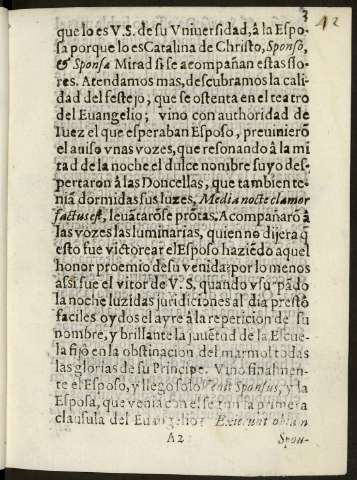 3
12
que lo es V.S. de su Vniuersidad, à la Espo-
sa porque lo es Catalina de Christo, Sponso,
& Sponsæ Mirad si se acompañan estas flo-
res. Atendamos mas, descubramos la cali-
dad del festejo, que se ostenta en el teatro
del Euangelio; vino con authoridad de
Iuez el que esperaban Esposo, preuinierõ
el auiso vnas vozes, que resonando â la mi
tad de la noche el dulce nombre suyo des-
pertaron à las Doncellas, que tambien te-
niã dormidas sus luzes, Media nocte clamor
factus est, leuãtarõse prõtas. Acompañarõ à
las vozes las luminarias, quien no dijera q̃
esto fue victorear el Esposo haziẽdo aquel
honor proemio de su venida; por lo menos
assi fue el vitor de V. S, quando vsurpãdo
la noche luzidas juridiciones al dia prestò
faciles oydos el ayre à la repeticion de su
nombre, y brillante la juuẽtud de la Escue-
la fijò en la obstinacion del marmol todas
las glorias de su Principe. Vino finalmen-
te el Esposo, y llegò solo Venit Sponsus, y la
Esposa, que venia con el segun la primera
clausula del Euangelio: Exierunt obuiam
A2
Spon-